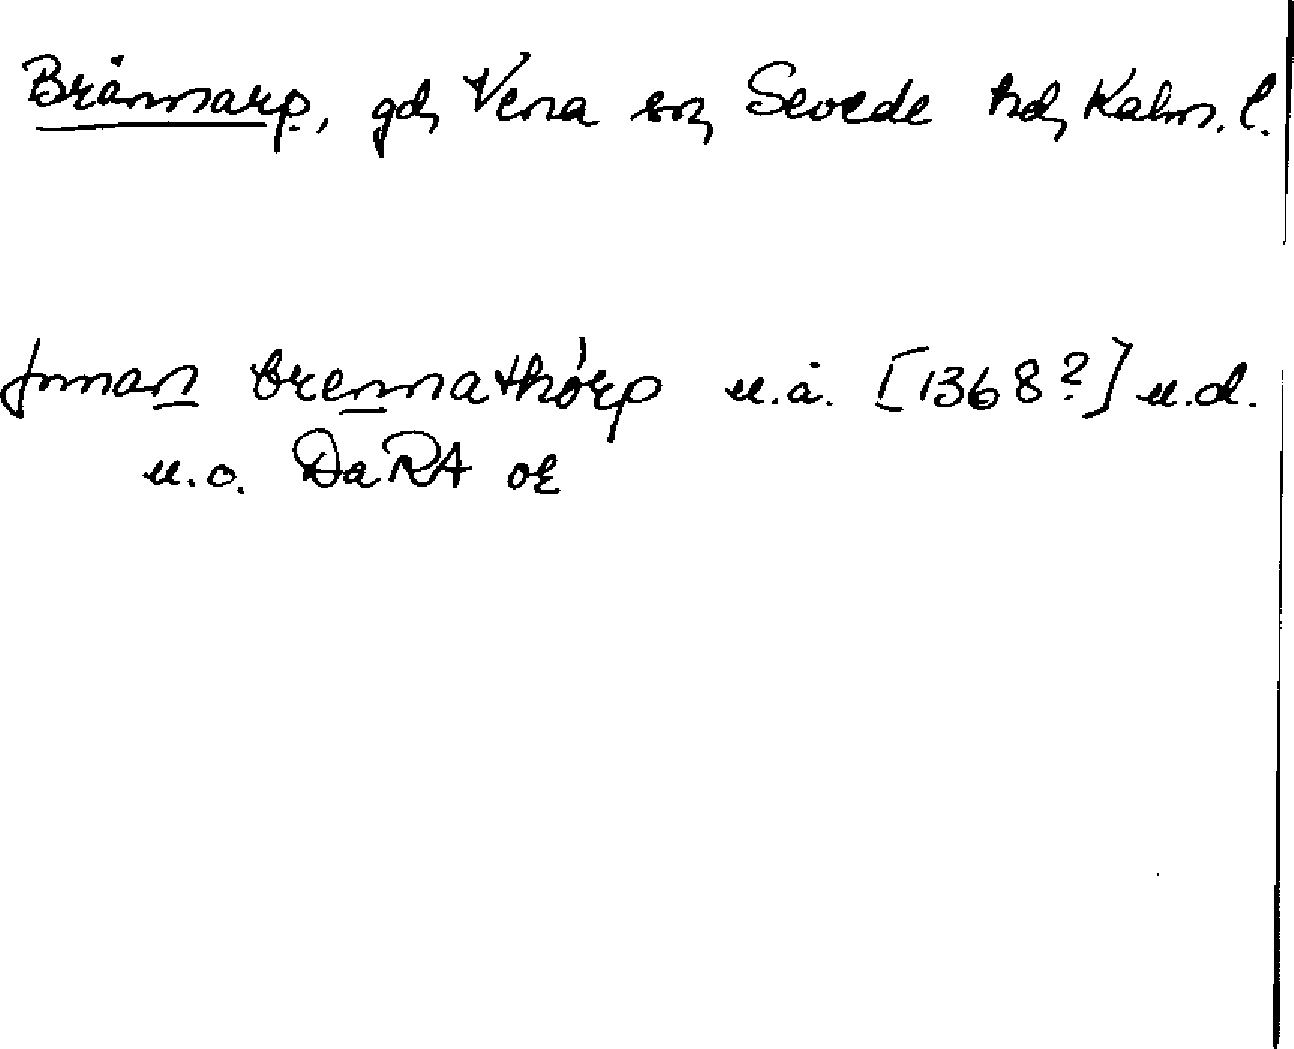 Brånnarp, gd, Vena sn, Sevede hd, Kalm. l.
Jnnan brennathørp u.å. [1368?] u.d.
u.o. DaRA or